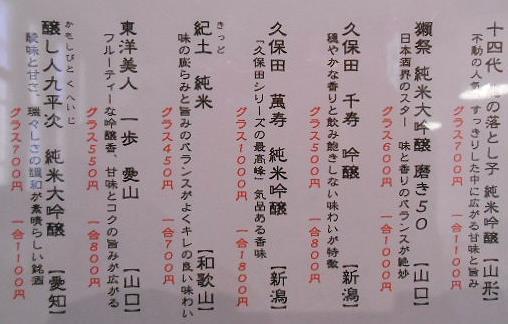 十四代 の落とし子 純米吟醸 【山形】
不動の人気 すっきりした中に広がる甘味と旨み
グラス700円 一合1100円
獺祭 純米大吟醸 磨き50 【山口】
日本酒界のスター 味と香りのバランスが絶妙
グラス600円 一合1000円
久保田 千寿 吟醸 【新潟】
穏やかな香りと飲み飽きしない味わいが特徴
グラス500円 一合800円
久保田 萬寿 純米吟醸 【新潟】
「久保田シリーズの最高峰」気品ある香味
グラス1000円 一合1800円
きっど
紀土 純米 【和歌山】
味の膨らみと旨みのバランスがよくキレの良い味わい
グラス450円 一合700円
東洋美人 一歩 愛山 【山口】
フルーティーな吟醸香、甘味とコクの旨みが広がる
グラス550円 一合800円
かもしびとくへいじ
醸し人九平次 純米大吟醸 【愛知】
酸味と甘さ、瑞々しさの調和が素晴らしい銘酒
グラス700円 一合1100円